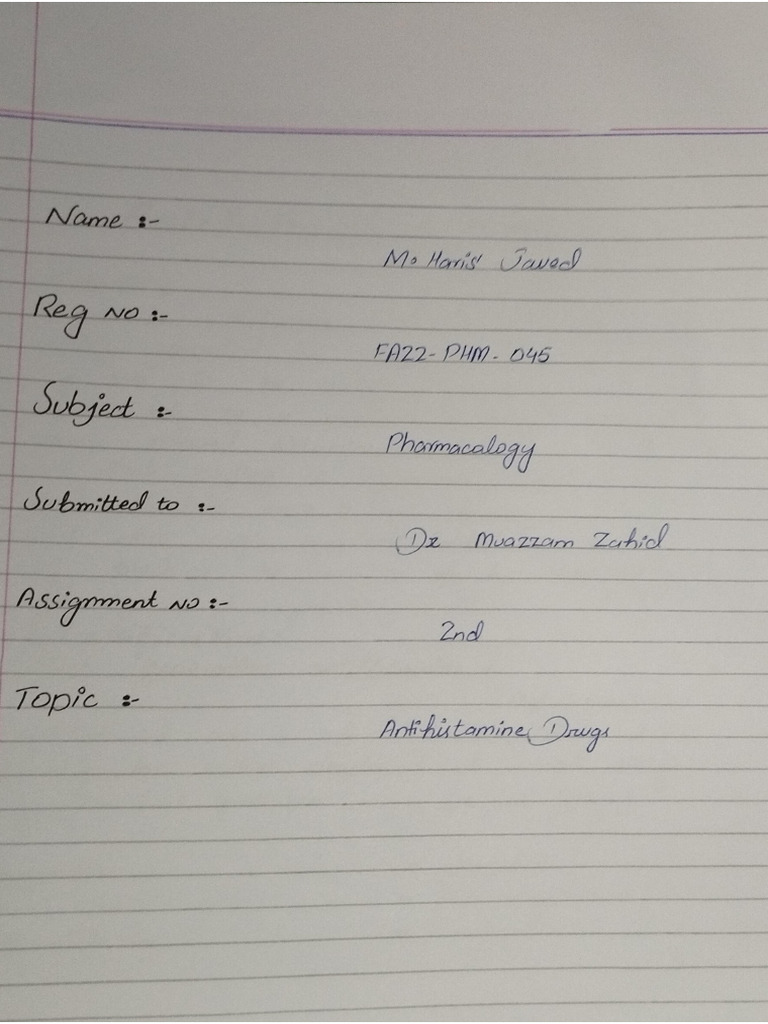 Name :-
M. Haris Javed
Reg No :-
FA22-PHM-045
Subject :-
Pharmacalogy
Submitted to :-
Dr Muazzam Zahid
Assignment No :-
2nd
Topic :-
Antihistamine Drugs